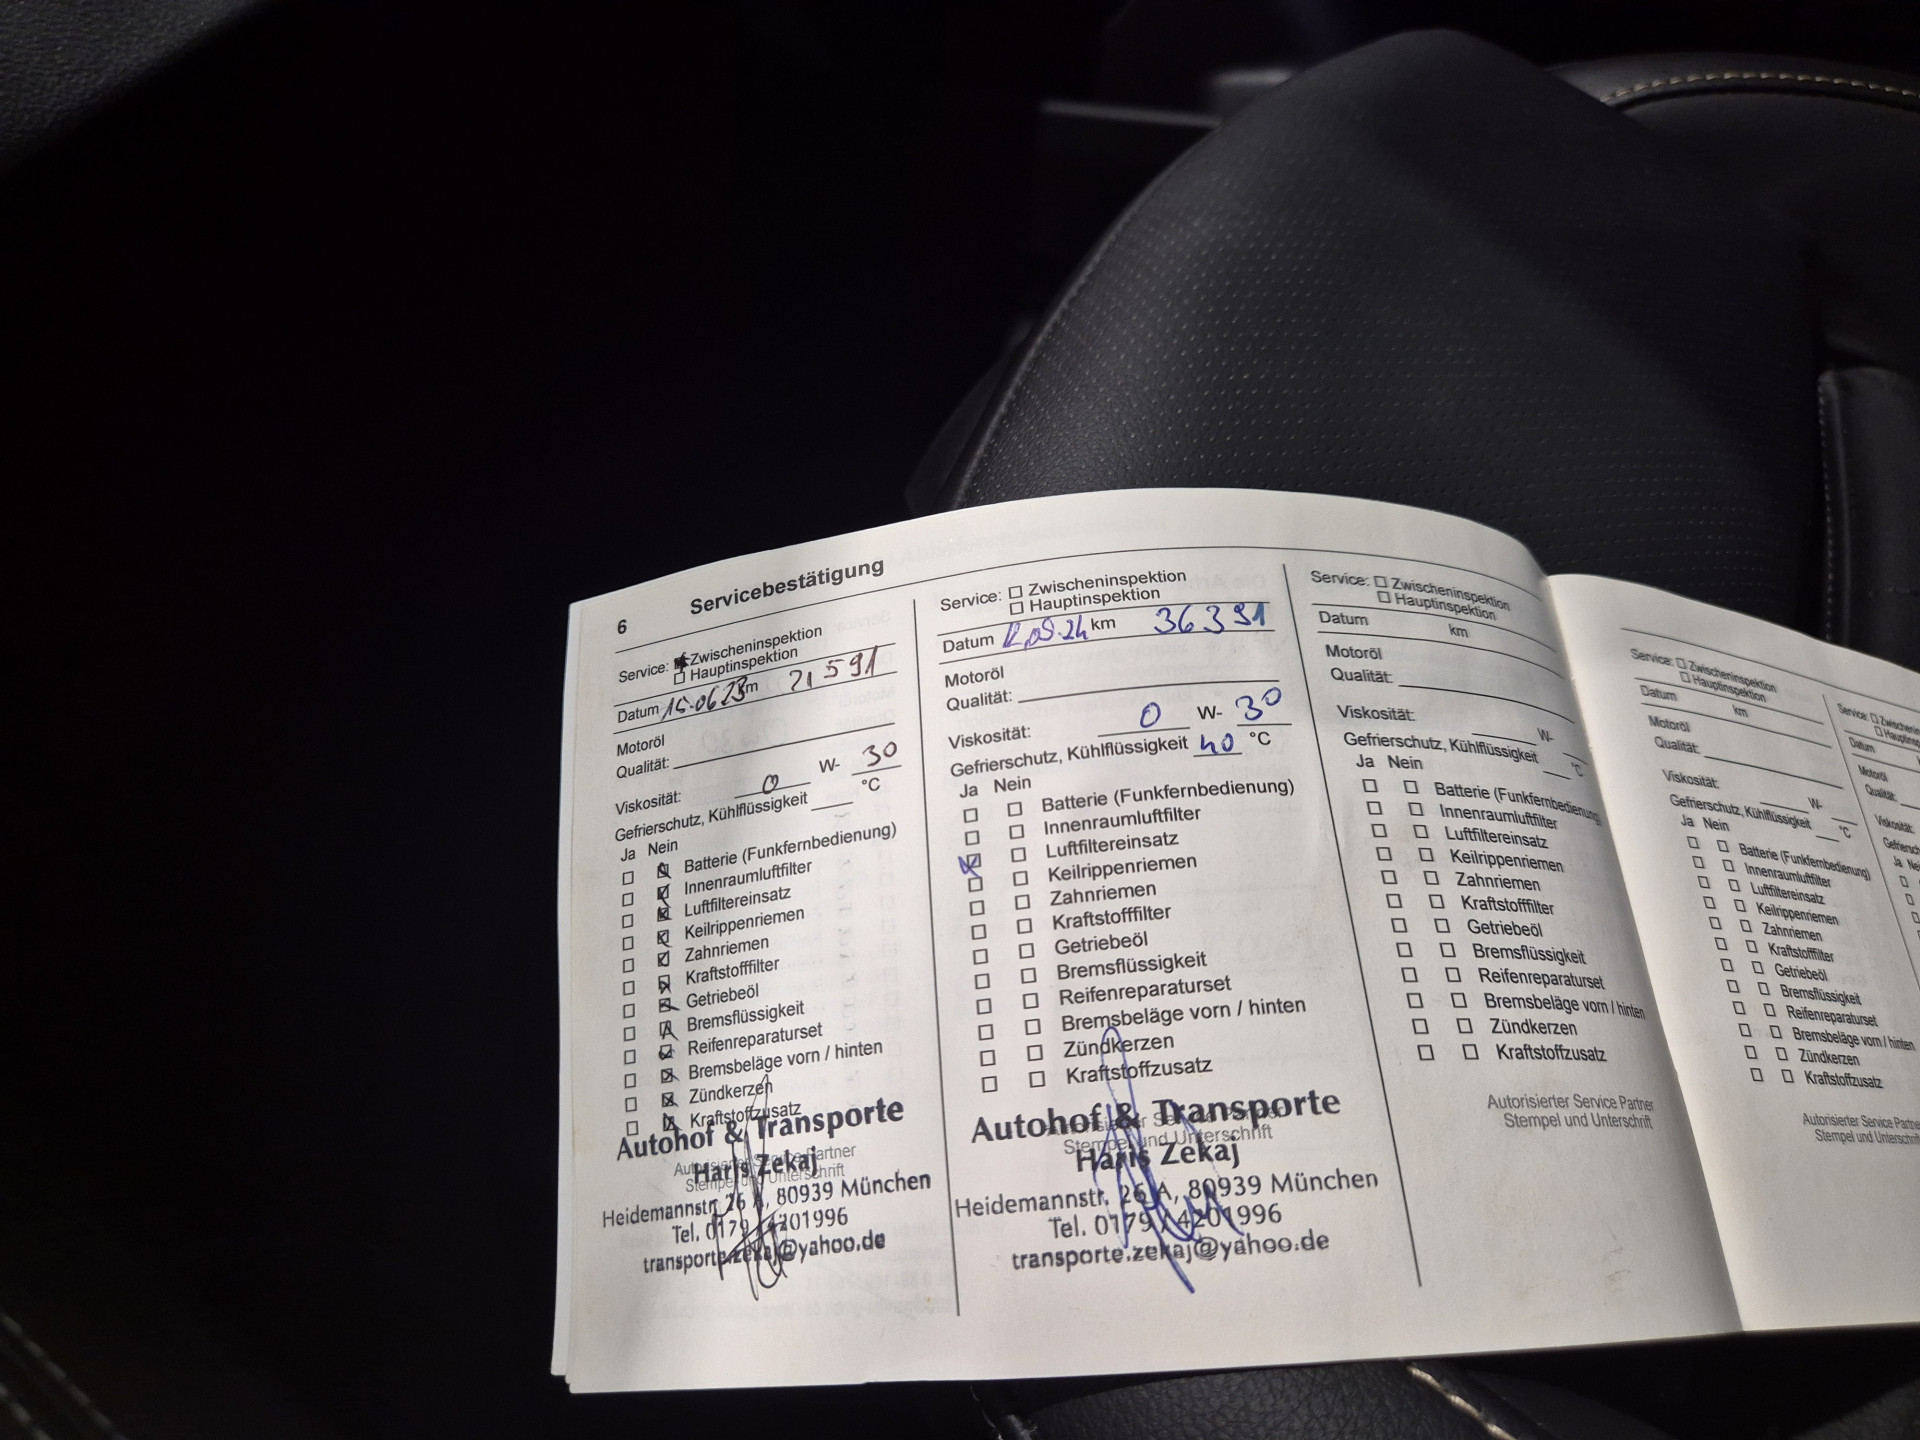 6 Servicebestätigung
Service: Zwischeninspektion
Hauptinspektion
Datum 15.06.23 km 21591
Motoröl
Qualität:
Viskosität: 0 W- 30
Gefrierschutz, Kühlflüssigkeit °C
Ja Nein
Batterie (Funkfernbedienung)
Innenraumluftfilter
Luftfiltereinsatz
Keilrippenriemen
Zahnriemen
Kraftstofffilter
Getriebeöl
Bremsflüssigkeit
Reifenreparaturset
Bremsbeläge vorn / hinten
Zündkerzen
Kraftstoffzusatz
Autohof & Transporte
Autorisierter Service Partner
Haris Zekaj
Stempel und Unterschrift
Heidemannstr. 26 A, 80939 München
Tel. 0179 / 4201996
transporte.zekaj@yahoo.de
Service: Zwischeninspektion
Hauptinspektion
Datum 12.09.24 km 36391
Motoröl
Qualität:
Viskosität: 0 W- 30
Gefrierschutz, Kühlflüssigkeit 40 °C
Ja Nein
Batterie (Funkfernbedienung)
Innenraumluftfilter
Luftfiltereinsatz
Keilrippenriemen
Zahnriemen
Kraftstofffilter
Getriebeöl
Bremsflüssigkeit
Reifenreparaturset
Bremsbeläge vorn / hinten
Zündkerzen
Kraftstoffzusatz
Autohof & Transporte
Autorisierter Service Partner
Stempel und Unterschrift
Haris Zekaj
Heidemannstr. 26 A, 80939 München
Tel. 0179 / 4201996
transporte.zekaj@yahoo.de
Service: Zwischeninspektion
Hauptinspektion
Datum km
Motoröl
Qualität:
Viskosität: W-
Gefrierschutz, Kühlflüssigkeit °C
Ja Nein
Batterie (Funkfernbedienung
Innenraumluftfilter
Luftfiltereinsatz
Keilrippenriemen
Zahnriemen
Kraftstofffilter
Getriebeöl
Bremsflüssigkeit
Reifenreparaturset
Bremsbeläge vorn / hinten
Zündkerzen
Kraftstoffzusatz
Autorisierter Service Partner
Stempel und Unterschrift
Service: Zwischeninspektion
Hauptinspektion
Datum km
Motoröl
Qualität:
Viskosität: W-
Gefrierschutz, Kühlflüssigkeit °C
Ja Nein
Batterie (Funkfernbedienung)
Innenraumluftfilter
Luftfiltereinsatz
Keilrippenriemen
Zahnriemen
Kraftstofffilter
Getriebeöl
Bremsflüssigkeit
Reifenreparaturset
Bremsbeläge vorn / hinten
Zündkerzen
Kraftstoffzusatz
Autorisierter Service Partne
Stempel und Unterschri
Service:
Datum
Motoröl
Qualität:
Viskosität:
Ja